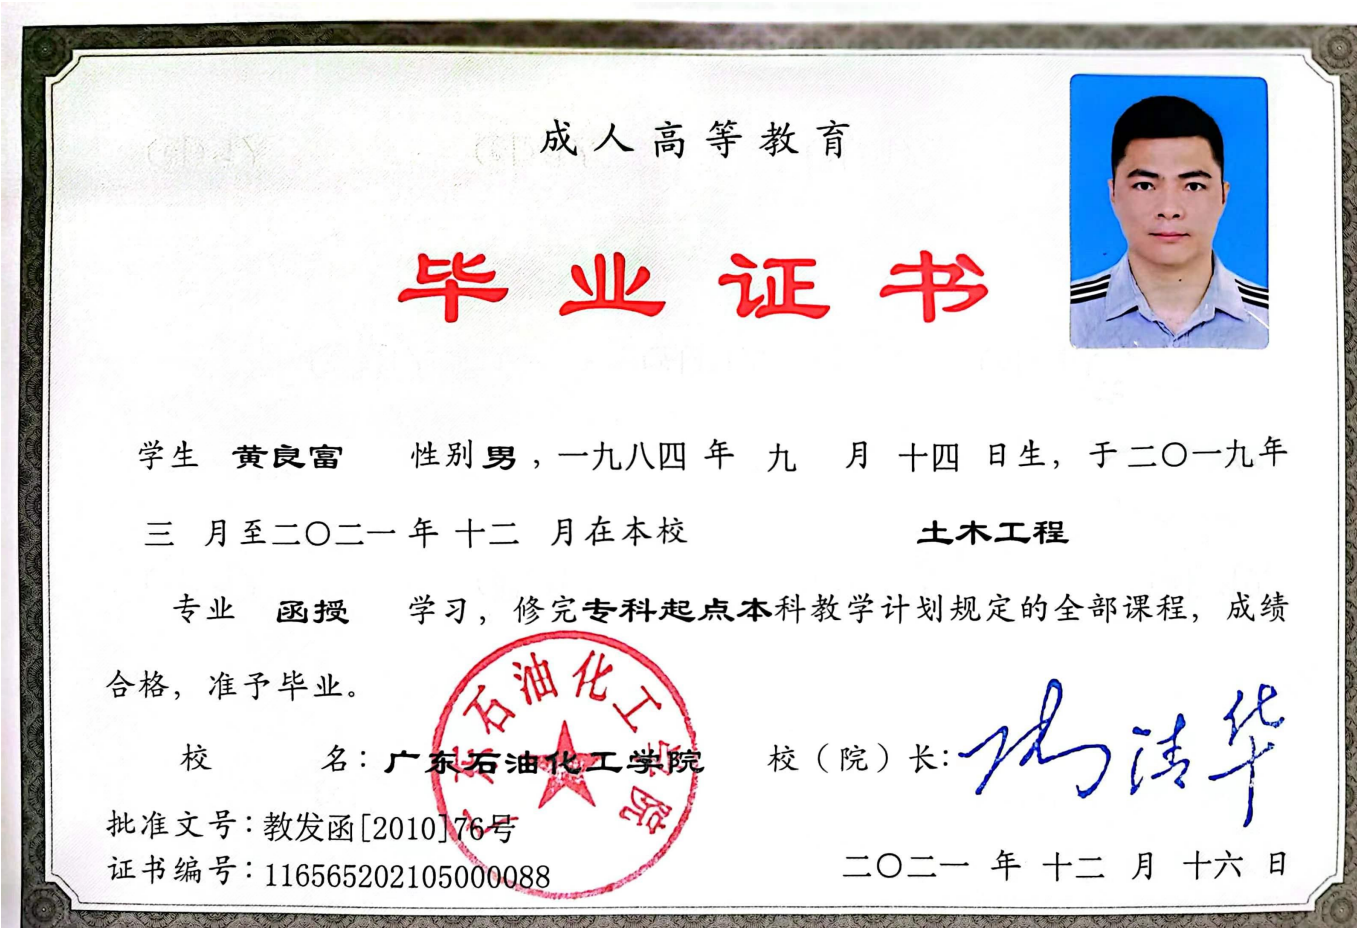 成人高等教育
毕业证书
学生 黄良富 性别男，一九八四年 九 月 十四 日生，于二〇一九年
三 月至二〇二一年 十二 月在本校 土木工程
专业 函授 学习，修完专科起点本科教学计划规定的全部课程，成绩
合格，准予毕业。
校 名：广东石油化工学院 校（院）长：
广东石油化工学院
批准文号：教发函[2010]76号
证书编号：116565202105000088
二〇二一 年 十二 月 十六 日